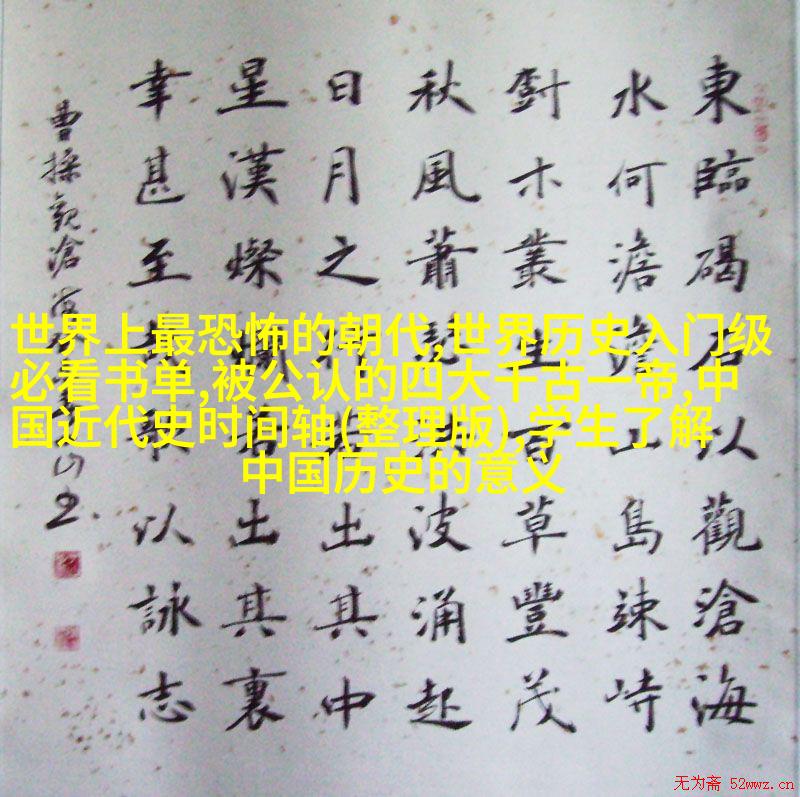 東臨碣石以觀滄海
水何澹澹山島竦峙
木叢生百草豐茂
秋風蕭瑟洪波涌起
日月之行若出其中
星漢燦爛若出其裏
幸甚至哉歌以詠志
曹操觀滄海
世界上最恐怖的朝代,世界历史入门级
必看书单,被公认的四大千古一帝,中
国近代史时间轴(整理版),学生了解
中国历史的意义
无为斋 52wwz.cn